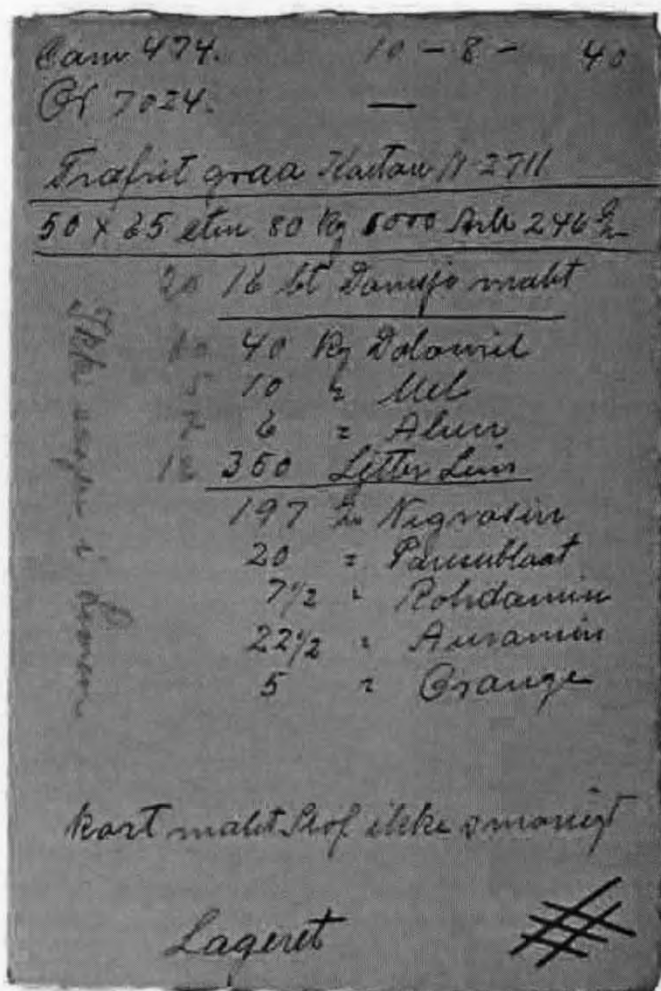 Cam 474. 10-8-40
Of 7024. —
Træfrit graa Karton N 2711
50 x 65 ctm 80 Kg 1000 Ark 246 gr
20 16 bt malt
40 Kg
5 10 " Mel
6 " Alun
350 Litter Lim
197 gr Nigrosin
20 " Pariserblaat
7 1/2 " Rohdamin
22 1/2 " Auramin
5 " Orange
Ikke i Limen
kort malt Stof ikke smørigt
Lageret